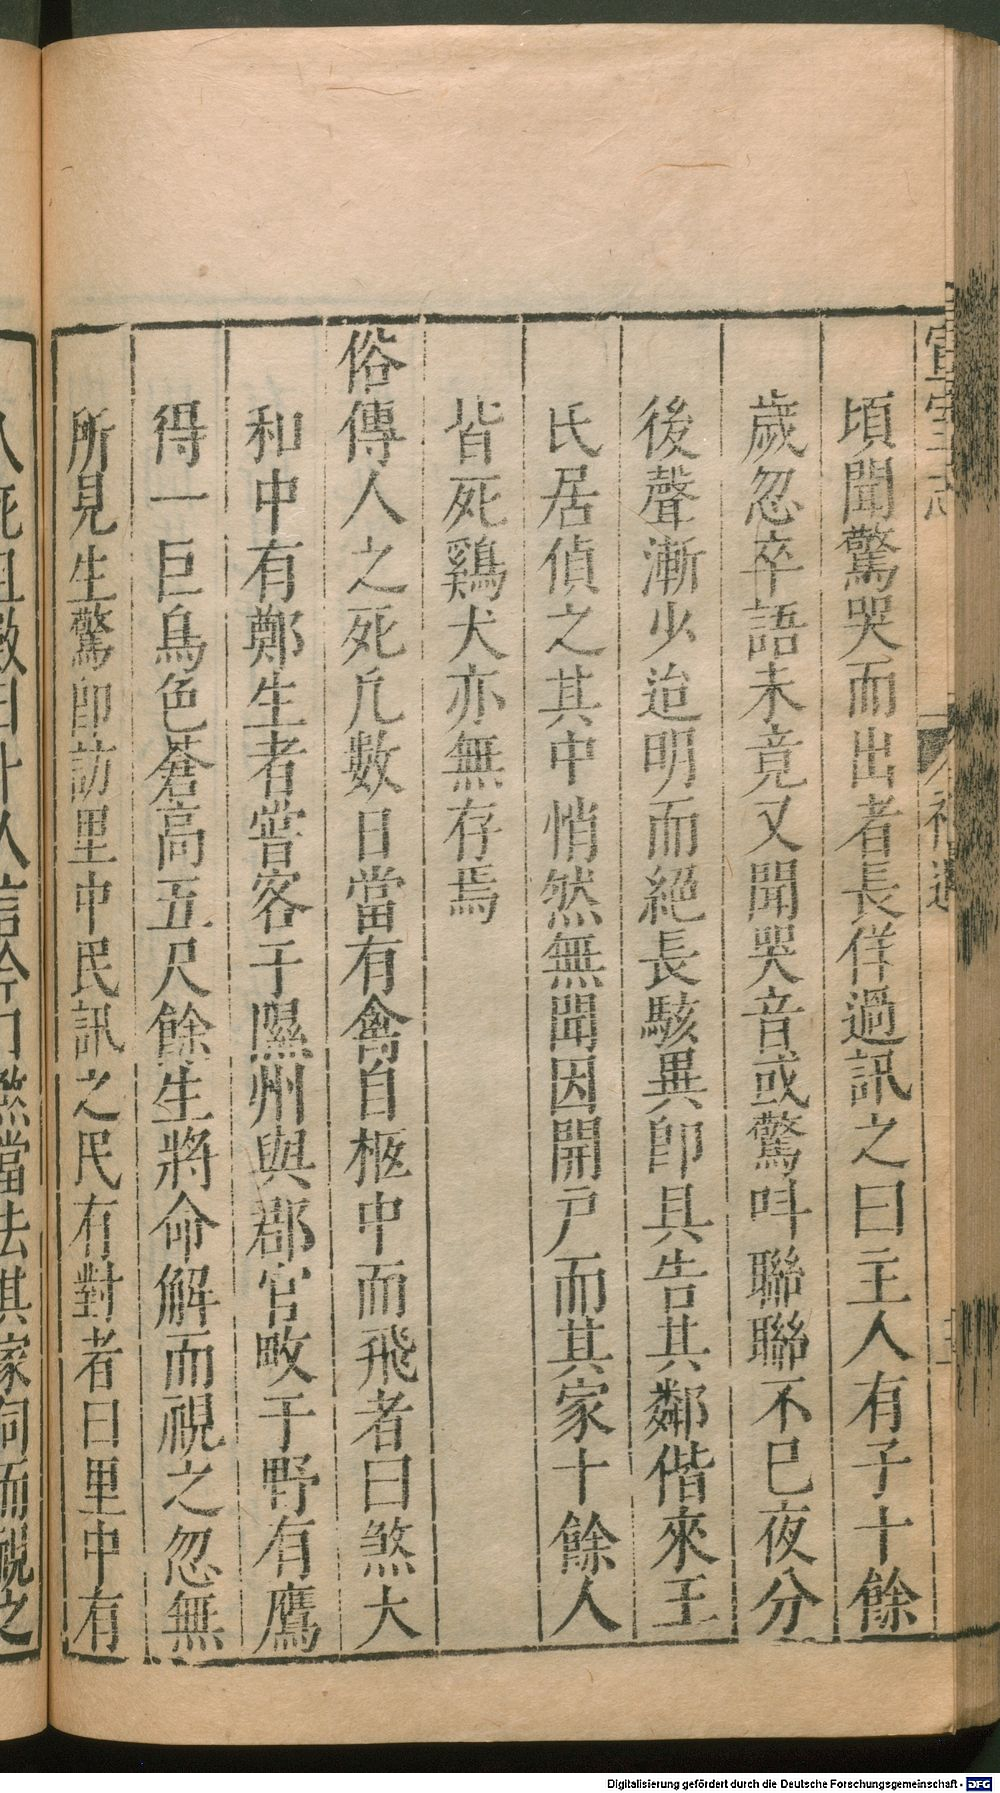 頃聞驚哭而出者長佯過訊之曰主人有子十餘
歲忽卒語未竟又聞哭音或驚呌聯聯不已夜分
後聲漸少迨明而絕長駭異卽具告其鄰偕來王
氏居偵之其中悄然無聞因開戸而其家十餘人
皆死鷄犬亦無存焉
俗傳人之死凢數日當有禽自柩中而飛者曰煞大
和中有鄭生者甞客于隰州與郡官畋于野有鷹
得一巨鳥色蒼高五尺餘生將命解而視之忽無
所見生驚卽訪里中民訊之民有對者曰里中有
人死且數日卜人言今日煞當去其家伺而視之
Digitalisierung gefördert durch die Deutsche Forschungsgemeinschaft - DFG